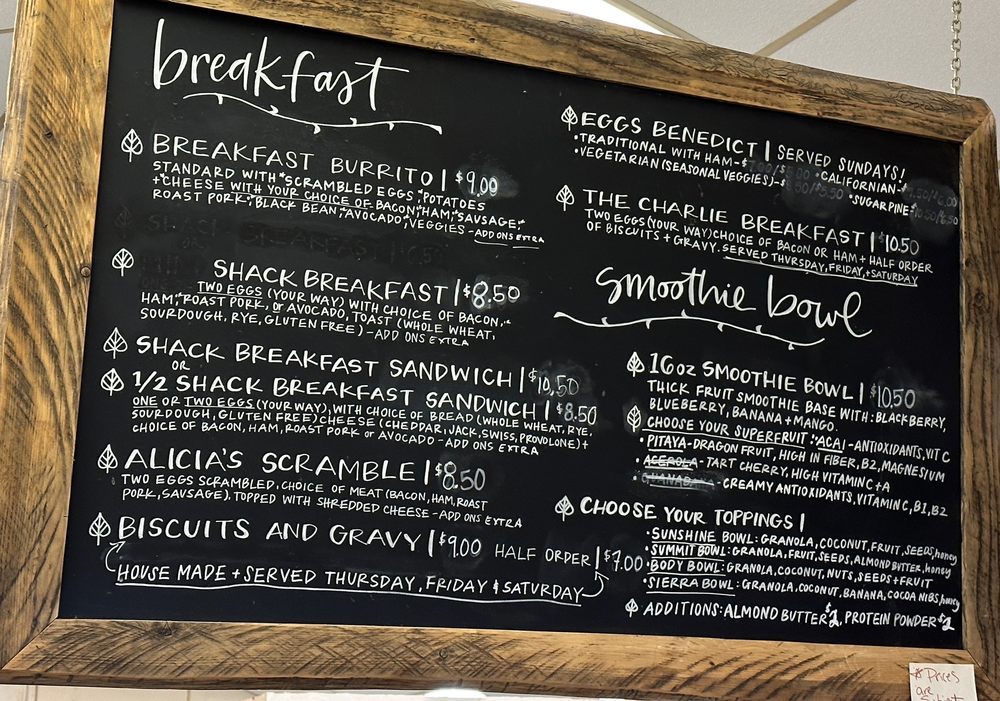 breakfast
BREAKFAST BURRITO | $9.00
STANDARD WITH SCRAMBLED EGGS, POTATOES
+ CHEESE WITH YOUR CHOICE OF BACON, HAM, SAUSAGE,
ROAST PORK, BLACK BEAN, AVOCADO, VEGGIES - ADD ONS EXTRA
SHACK BREAKFAST | $8.50
TWO EGGS (YOUR WAY) WITH CHOICE OF BACON,
HAM, ROAST PORK, or AVOCADO, TOAST (WHOLE WHEAT,
SOURDOUGH, RYE, GLUTEN FREE) - ADD ONS EXTRA
SHACK BREAKFAST SANDWICH | $10.50
OR
1/2 SHACK BREAKFAST SANDWICH | $8.50
ONE OR TWO EGGS (YOUR WAY), WITH CHOICE OF BREAD (WHOLE WHEAT, RYE,
SOURDOUGH, GLUTEN FREE) CHEESE (CHEDDAR, JACK, SWISS, PROVOLONE) +
CHOICE OF BACON, HAM, ROAST PORK or AVOCADO - ADD ONS EXTRA
ALICIA'S SCRAMBLE | $8.50
TWO EGGS SCRAMBLED, CHOICE OF MEAT (BACON, HAM, ROAST
PORK, SAUSAGE), TOPPED WITH SHREDDED CHEESE - ADD ONS EXTRA
BISCUITS AND GRAVY | $9.00 HALF ORDER | $7.00
HOUSE MADE + SERVED THURSDAY, FRIDAY & SATURDAY
EGGS BENEDICT | SERVED SUNDAYS!
• TRADITIONAL WITH HAM - $ • CALIFORNIAN - $
• VEGETARIAN (SEASONAL VEGGIES) - $ • SUGARPINE - $
THE CHARLIE BREAKFAST | $10.50
TWO EGGS (YOUR WAY) CHOICE OF BACON OR HAM + HALF ORDER
OF BISCUITS + GRAVY. SERVED THURSDAY, FRIDAY, + SATURDAY
smoothie bowl
16oz SMOOTHIE BOWL | $10.50
THICK FRUIT SMOOTHIE BASE WITH: BLACKBERRY,
BLUEBERRY, BANANA + MANGO.
CHOOSE YOUR SUPERFRUIT: •ACAI - ANTIOXIDANTS, VIT C
• PITAYA - DRAGON FRUIT, HIGH IN FIBER, B2, MAGNESIUM
• ACEROLA - TART CHERRY, HIGH VITAMIN C + A
• GUANABANA - CREAMY ANTIOXIDANTS, VITAMIN C, B1, B2
CHOOSE YOUR TOPPINGS |
• SUNSHINE BOWL: GRANOLA, COCONUT, FRUIT, SEEDS, honey
• SUMMIT BOWL: GRANOLA, FRUIT, SEEDS, ALMOND BUTTER, honey
• BODY BOWL: GRANOLA, COCONUT, NUTS, SEEDS + FRUIT
• SIERRA BOWL: GRANOLA, COCONUT, BANANA, COCOA NIBS, honey
ADDITIONS: ALMOND BUTTER $2, PROTEIN POWDER $2
* Prices
are